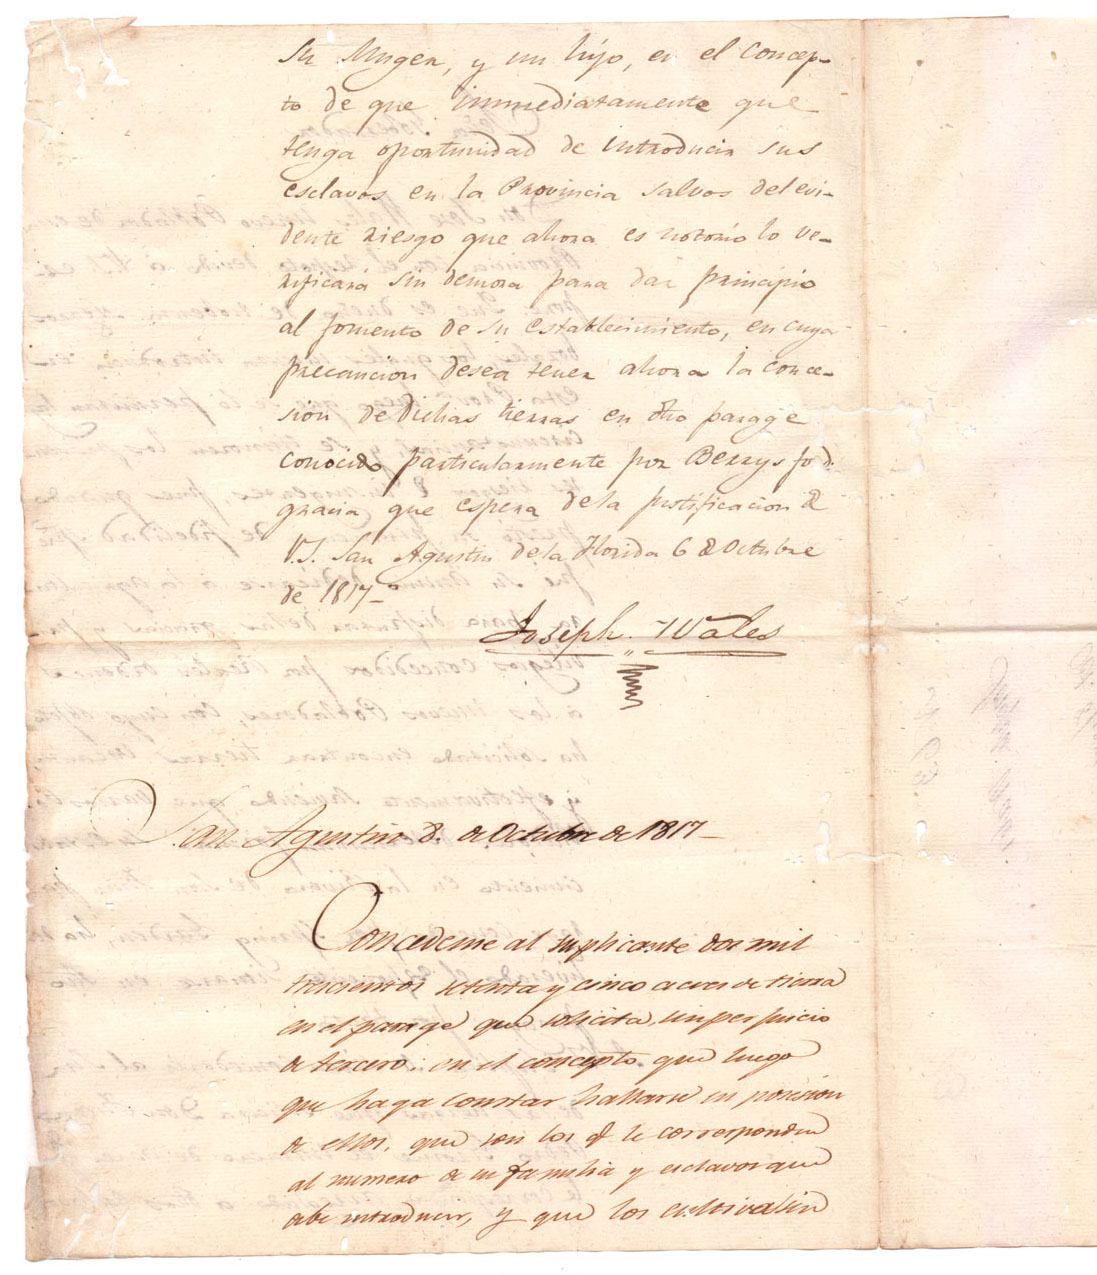 su Muger, y un hijo, en el concep-
to de que immediatamente que
tenga oportunidad de introducir sus
esclavos en la Provincia salvos del evi-
dente riesgo que ahora es notorio lo ve-
rificará sin demora para dar principio
al fomento de su establecimiento, en cuya
precaucion desea tener ahora la conce-
sión de dichas tierras en otro parage
conocido particularmente por Berrysfod:
gracia que espera de la justificacion d
V.S. San Agustin de la Florida 6 d Octubre
de 1817—
Joseph Wales
San Agustin 8. de Octubre de 1817—
Concedense al suplicante dos mil
trescientos setenta y cinco acres de tierra
en el parage que solicita, sin perjuicio
de tercero: en el concepto que luego
que haga constar hallarse en posesion
de ellos, que son los q.e le corresponden
al numero de su familia y esclavos que
debe introducir, y que los cultiva sin